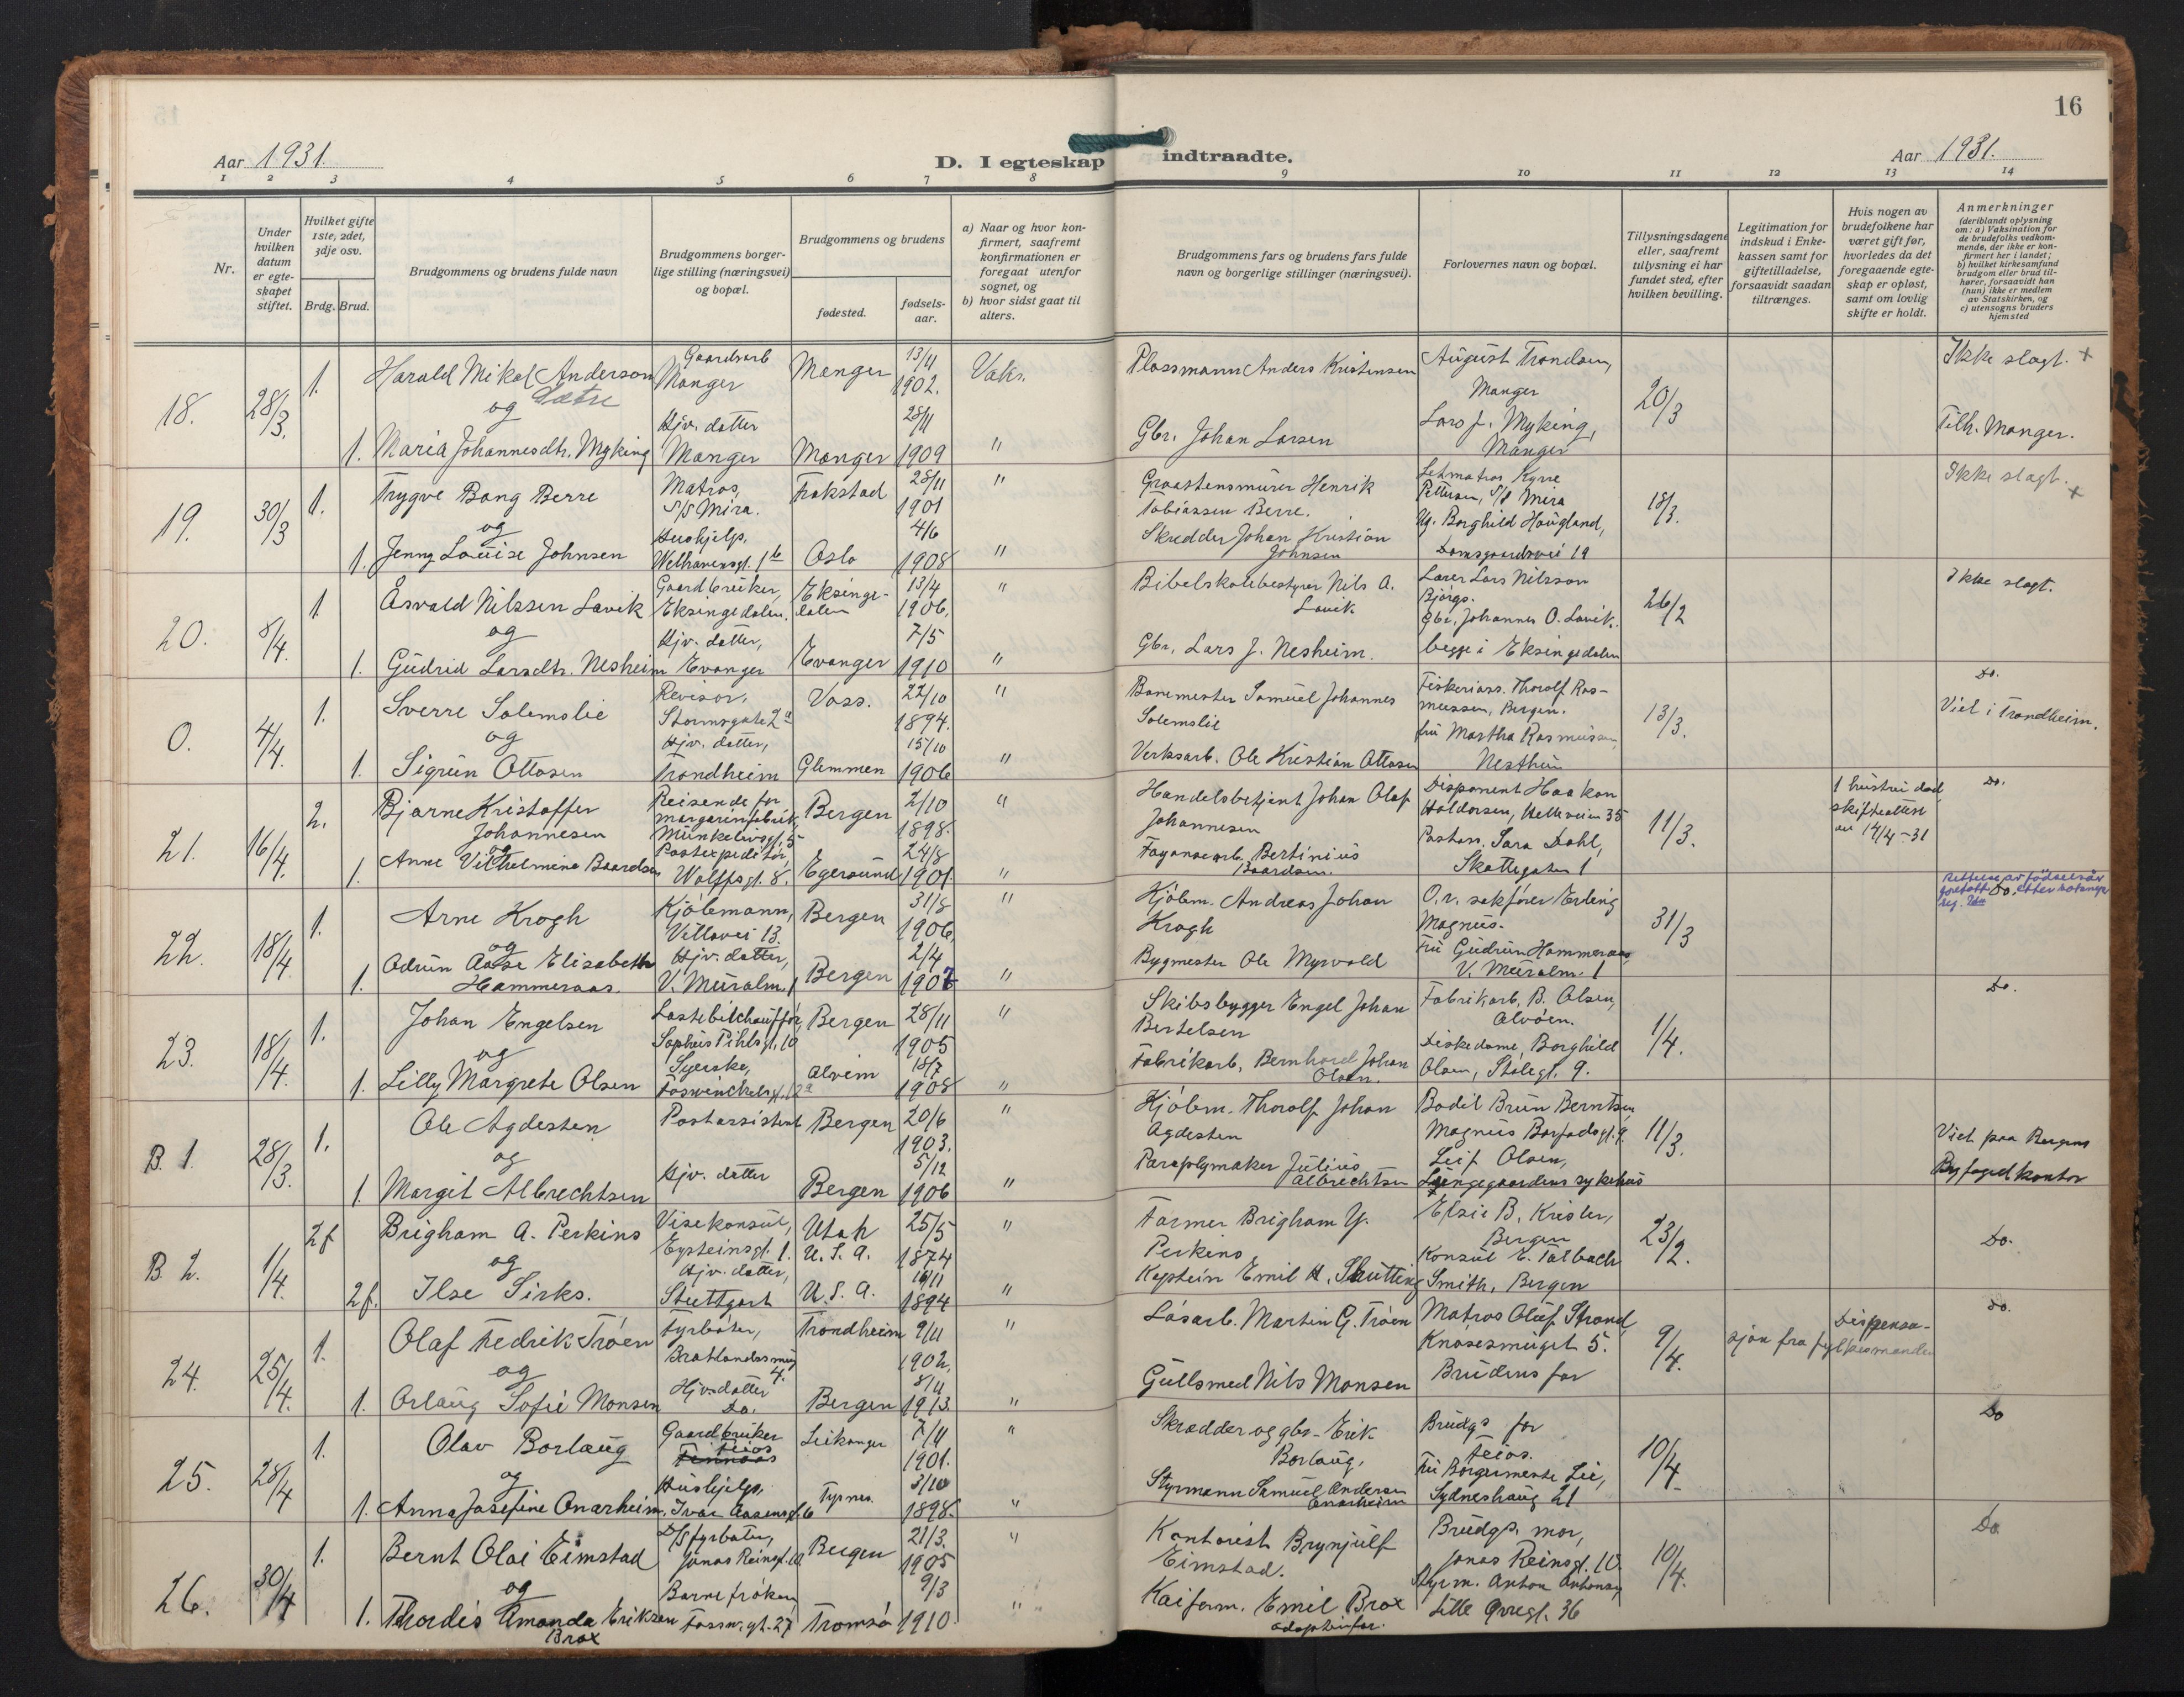 16
Aar 1931.
D. I egteskap indtraadte.
Aar 1931.
1 2 3 4 5 6 7 8 9 10 11 12 13 14
Nr.
Under hvilken datum er egte-skapet stiftet.
Hvilket gifte 1ste, 2det, 3dje osv.
Brdg. Brud.
Brudgommens og brudens fulde navn
Brudgommens borger-lige stilling (næringsvei) og bopæl.
Brudgommens og brudens
fødested.
fødsels-aar.
a) Naar og hvor kon-firmert, saafremt konfirmationen er foregaat utenfor sognet, og
b) hvor sidst gaat til alters.
Brudgommens fars og brudens fars fulde navn og borgerlige stillinger (næringsvei).
Forlovernes navn og bopæl.
Tillysningsdagene eller, saafremt tillysning ei har fundet sted, efter hvilken bevilling.
Legitimation for indskud i Enke-kassen samt for giftetilladelse, forsaavidt saadan tiltrænges.
Hvis nogen av brudefolkene har været gift før, hvorledes da det foregaaende egte-skap er opløst, samt om lovlig skifte er holdt.
Anmerkninger
(deriblandt oplysning om: a) Vaksination for de brudefolks vedkom-mende, der ikke er kon-firmert her i landet; b) hvilket kirkesamfund brudgom eller brud til-hører, forsaavidt han (hun) ikke er medlem av Statskirken, og c) utensogns bruders hjemsted
18. 28/3. 1. Harald Mikal Anderson Sætre Gaardsarb Manger Manger 13/11 1902. Vaks. Plassmann Anders Kristensen August Trondsen, Manger 20/3 Ikke slagt. +
og
1. Maria Johannesdtr. Myking Hjv. datter Manger Manger 28/11 1909 " Gbr. Johan Larsen Lars J. Myking, Manger Tilh. Manger.
19. 30/3 1. Trygve Bang Berre Matros, S/S Mira. Trøkstad 28/11 1901 " Graastensmürer Henrik Tobiassen Berre. Letmatros Kyrre Pettersen, S/S Mira 18/3. Ikke slagt. +
og
1. Jenny Louise Johnsen Hushjelp, Welhavensgt. 1b Oslo 4/6 1908 " Skredder Johan Kristian Johnsen Ug. Borghild Haugland, Damsgaardsvei 19
20. 8/4. 1 Åsvald Nilssen Lavik Gaardbruker, Eksingedalen. Eksinge-dalen 13/4 1906. " Bibelskolebestyrer Nils A. Lavik Lærer Lars Nilsson Bjørgo. 26/2 Ikke slagt.
og
1. Gudrid Larsdtr. Nesheim Hjv. datter, Evanger Evanger 7/5 1910 " Gbr. Lars J. Nesheim. Gbr. Johannes O. Lavik. begge i Eksingedalen
0. 4/4. 1. Sverre Solemslie Revisor, Stormsgate 2a Voss. 22/10 1894. " Banemester Samuel Johannes Solemslie Fiskeriass. Thorolf Ras-mussen, Bergen. 13/3. Do. Viet i Trondheim.
og
1. Sigrun Ottosen Hjv. datter, Trondheim Glemmen 15/10 1906 " Verksarb. Ole Kristian Ottosen fru Martha Rasmussen, Nesttun
21. 16/4. 2. Bjarne Kristoffer Johannesen Reisende for margarinfabrik, Munkelivsgt. 5 Bergen 2/10 1898. " Handelsbetjent Johan Olaf Johannesen Disponent Haakon Haldorsen, Helleveien 35 11/3. 1 hustru død, skifteattest av 14/4-31 Do.
og
1. Anne Vilhelmine Baardsen Postexpeditør, Wolffsgt. 8. Egersund 24/8 1901. " Fayansearb. Bertinius Baardsen. Postass. Sara Dahl, Skottegaten 1
22. 18/4 1. Arne Krogh Kjølemann, Villavei 13. Bergen 31/8 1906. " Kjølem. Andreas Johan Krogh O.r. sakfører Erling Magnus. 31/3 Rettelse av fødselsår foretatt Do.
og
1. Odrun Aase Elisabeth Hammeraas. Hjv. datter, V. Muralm. 1 Bergen 2/4 1907 " Bygmester Ole Myrvold Fru Gudrun Hammeraas, V. Muralm. 1
23. 18/4. 1. Johan Engelsen Lastebilchauffør, Sophus Pihlsgt. 10 Bergen 28/11 1905 " Skibsbygger Engel Johan Bertelsen Fabrikarb. B. Olsen, Alvøen. 1/4. Do.
og
1. Lilly Margrete Olsen Syerske, Fosswinckelsgt. 12a Alvøen 18/7 1908 " Fabrikarb. Bernhard Johan Olsen. Diskedame Borghild Olsen, Stølegt. 9.
B. 1. 28/3. 1. Ole Agdesten Postassistent Bergen 20/6 1903. " Kjølem. Thorolf Johan Agdesten Bodil Brun Berntsen, Magnus Barfodsgt. 9. 11/3. Viet paa Bergens Byfogedkontor
og
1. Margit Albrechtsen Hjv. datter Bergen 5/12 1906 " Paraplymaker Julius Albrechtsen Leif Olsen, Lungegaardens sykehus
B 2. 1/4. 2f Brigham A. Perkins Visekonsul, Eysteinsgt. 1. Utah U.S.A. 25/5 1874 " Farmer Brigham Y. Perkins Elsie B. Krisler, Bergen 23/2. Do.
og
2f. Ilse Sirks. Hjv. datter, Stuttgart U.S.A. 16/11 1894 " Kaptein Emil H. Shutting Konsul E. Talbach Smith, Bergen
24. 25/4. 1. Olaf Fredrik Trøen Fyrbøter, Bratlandssmug 4. Trondheim 9/11 1902. " Løsarb. Martin G. Trøen Matros Oluf Strand, Knøsesmuget 5. 9/4. Dispensa-sjon fra fylkesmanden Do.
og
1. Orlaug Sofie Monsen Hjv. datter Do. Bergen 8/11 1913. " Gullsmed Nils Monsen Brudens far
25. 28/4 1. Olav Borlaug Gaardbruker Feios Leikanger 7/11 1901. " Skrædder og gbr. Erik Borlaug, Brudgs far Feios. 10/4. Do
og
1. Anna Josefine Onarheim. Hushjelp, Ivar Aasensgt. 6 Tysnes. 3/10 1898. " Styrmann Samuel Andersen Onarheim Fru Borgermester Lie, Sydneshaug 21
26. 30/4 1. Bernt Olai Eimstad D/S fyrbøter, Jonas Reinsgt. 10 Bergen 21/3. 1905 " Kontorist Brynjulf Eimstad. Brudgs. mor, Jonas Reinsgt. 10. 10/4. Do.
og
1. Thordis Amanda Eriksen Brox Barnefrøken, Fossw. gt. 27 Tromsø 9/3 1910 " Kaiform. Emil Brox adoptivfar. Styrm. Anton Antonsen, Lille Øvregt. 36